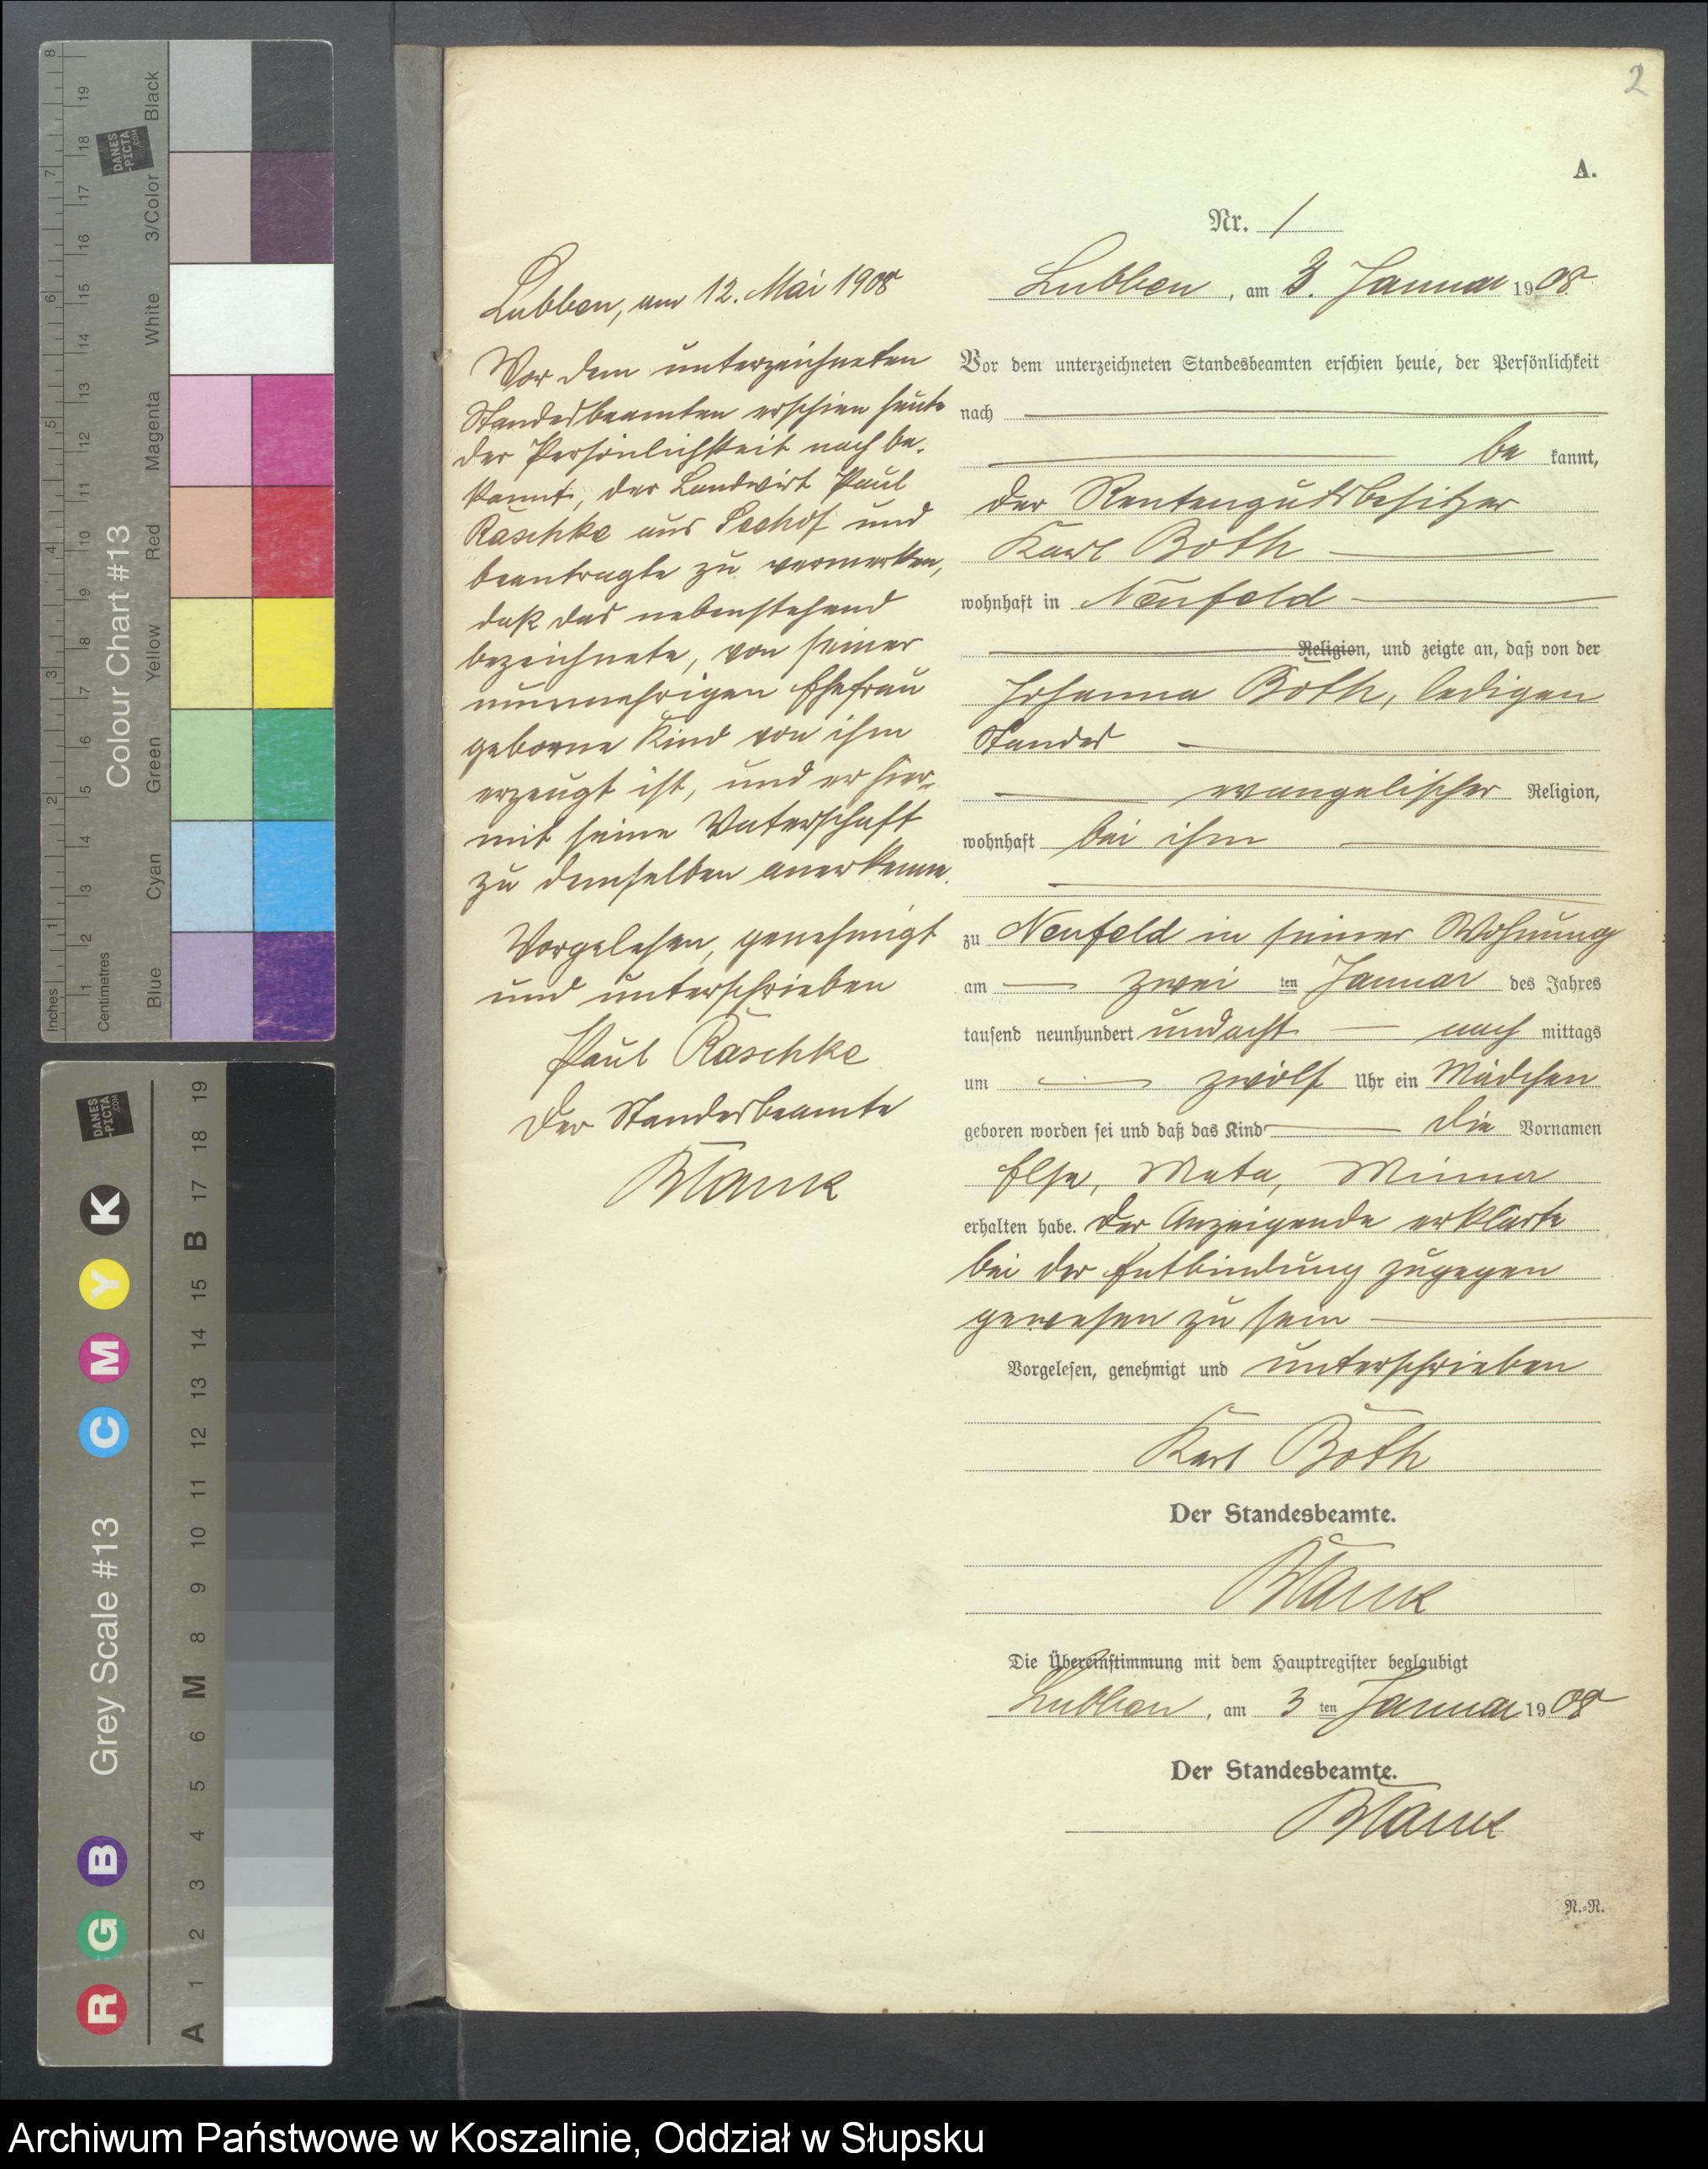 2
A.
Nr. 1
Lubben, am 3. Januar 1908
Vor dem unterzeichneten Standesbeamten erschien heute, der Persönlichkeit
nach
be kannt,
der Rentengutsbesitzer
Karl Both
wohnhaft in Neufeld
Religion, und zeigte an, daß von der
Johanna Both, ledigen
Standes
evangelischer Religion,
wohnhaft bei ihm
zu Neufeld in seiner Wohnung
am zwei ten Januar des Jahres
tausend neunhundert und acht nach mittags
um zwölf Uhr ein Mädchen
geboren worden sei und daß das Kind die Vornamen
Else, Meta, Minna
erhalten habe. Der Anzeigende erklärte
bei der Entbindung zugegen
gewesen zu sein
Vorgelesen, genehmigt und unterschrieben
Karl Both
Der Standesbeamte.
Die Übereinstimmung mit dem Hauptregister beglaubigt
Lubben, am 3 ten Januar 1908
Der Standesbeamte.
R.-R.
Lubben, am 12. Mai 1908
Vor dem unterzeichneten
Standesbeamten erschien heute
der Persönlichkeit nach be-
kannt, der Landwirt Paul
Raschke aus Seehof und
beantragte zu vermerken,
daß das nebenstehend
bezeichnete, von seiner
nunmehrigen Ehefrau
geborne Kind von ihm
erzeugt ist, und er hier-
mit seine Vaterschaft
zu demselben anerkenne.
Vorgelesen, genehmigt
und unterschrieben
Paul Raschke
Der Standesbeamte
Colour Chart #13
Inches 1 2 3 4 5 6 7 8
Centimetres 1 2 3 4 5 6 7 8 9 10 11 12 13 14 15 16 17 18 19
Blue Cyan Green Yellow Red Magenta White 3/Color Black
DANES
-PICTA
.COM
Grey Scale #13
R G B C M Y K
A 1 2 3 4 5 6 M 8 9 10 11 12 13 14 15 B 17 18 19
DANES
-PICTA
.COM
Archiwum Państwowe w Koszalinie, Oddział w Słupsku